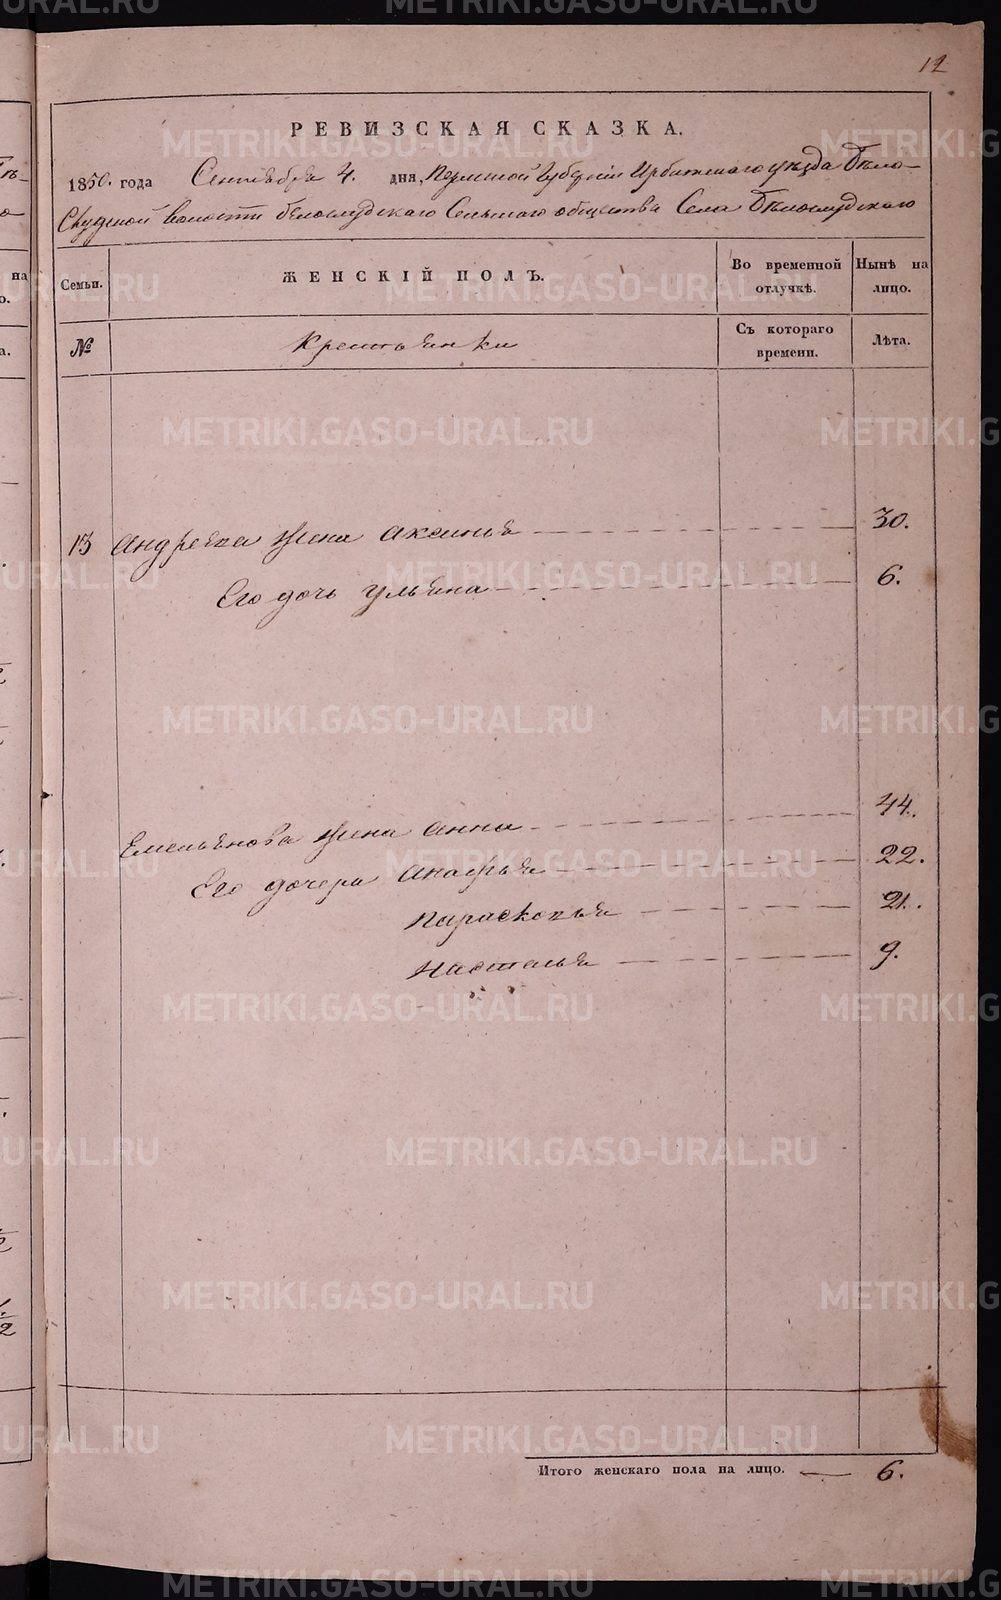 12
РЕВИЗСКАЯ СКАЗКА.
1850. года Сентября 4. дня, Пермской Губерніи Ирбитскаго уѣзда Бѣло-
Слудской волости Белослудскаго Сельскаго общества Села Бѣлослудскаго
Семьи. ЖЕНСКІЙ ПОЛЪ. Во временной отлучкѣ. Нынѣ на лицо.
№ Крестьянки Съ котораго времени. Лѣта.
13 Андреяна жена Аксинья 30.
Его дочь Ульяна 6.
Емельянова жена Анна 44.
Его дочери Анафья 22.
Парасковья 21.
Насталья 9.
Итого женскаго пола на лицо. 6.
METRIKI.GASO-URAL.RU